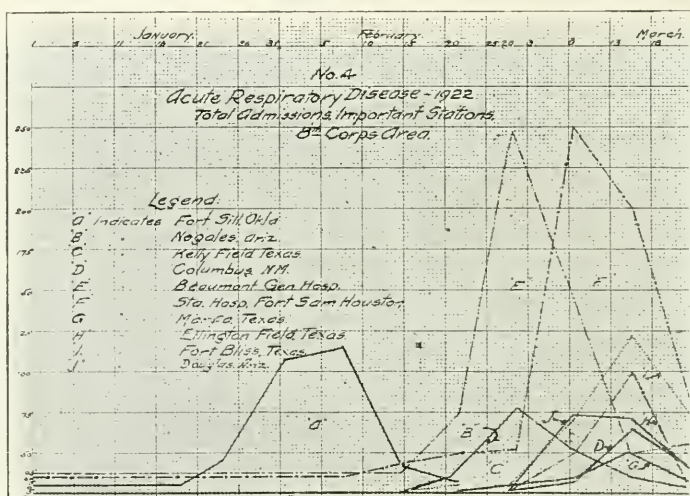 January. February. March.
No. 4
Acute Respiratory Disease - 1922
Total Admissions, Important Stations,
8th Corps Area.
Legend:
"A" Indicates Fort Sill, Okla
"B" " Nogales, Ariz.
"C" " Kelly Field Texas
"D" " Columbus, N.M.
"E" " Beaumont Gen. Hosp.
"F" " Sta. Hosp. Fort Sam Houston
"G" " Marfa, Texas
"H" " Ellington Field, Texas
"I" " Fort Bliss, Texas
"J" " Douglas, Ariz.
250
200
75
50
"E"
"F"
"A"
"B"
"C"
"D"
"G"
"H"
"J"